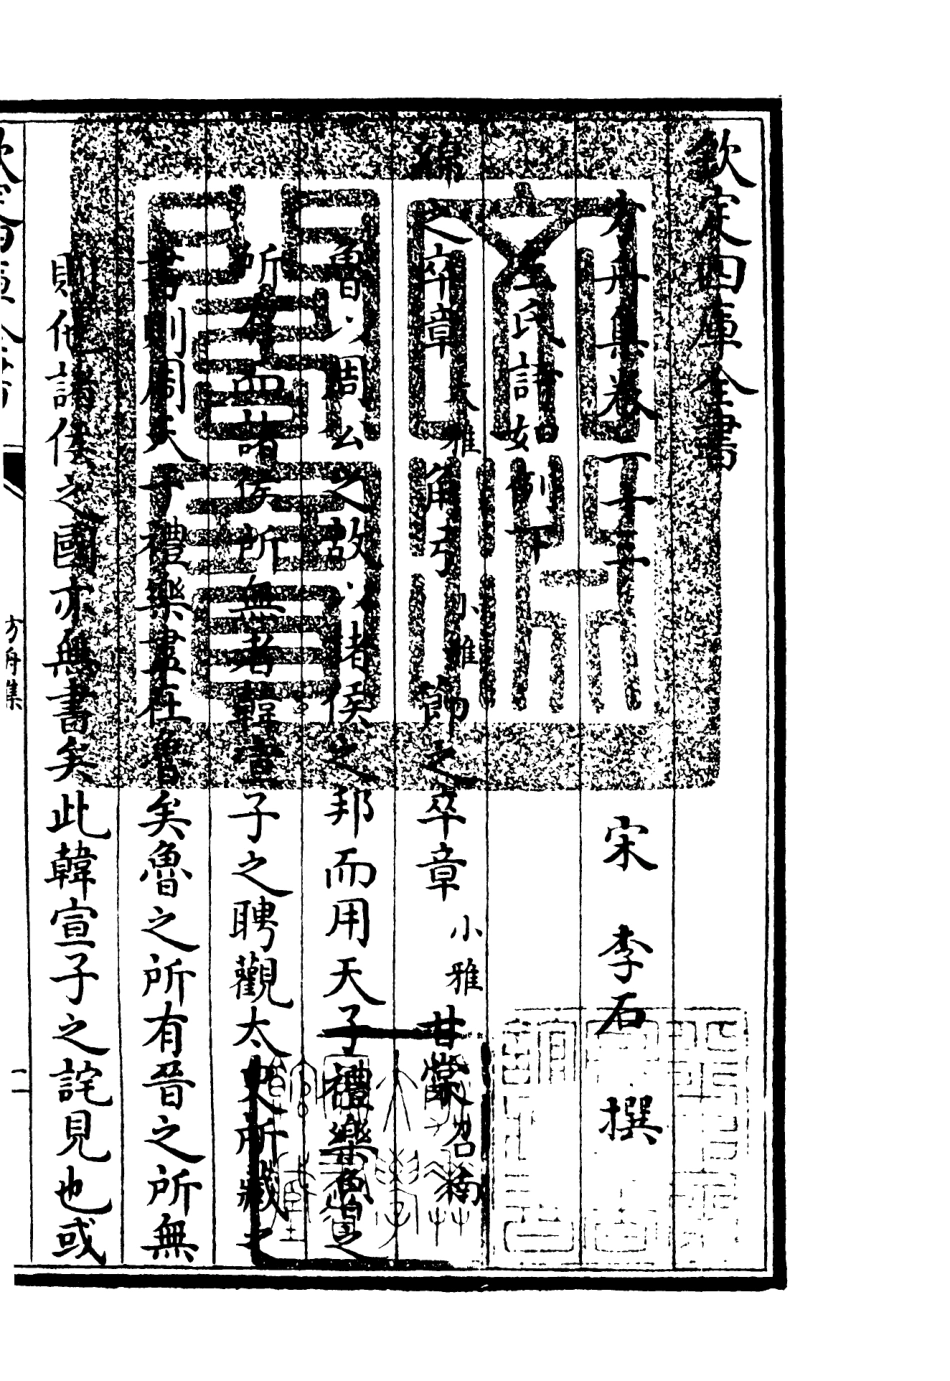 欽定四庫全書
方舟集卷二十三
宋 李石 撰
左氏詩如例下
緜之卒章 大雅 角弓 小雅 節之卒章 小雅 甘棠 召南
魯以周公之故以諸侯之邦而用天子禮樂魯之
所有而諸侯所無者韓宣子之聘觀太史所藏之
書則周天子禮樂盡在魯矣魯之所有晉之所無
則他諸侯之國亦無書矣此韓宣子之詫見也或
方舟集